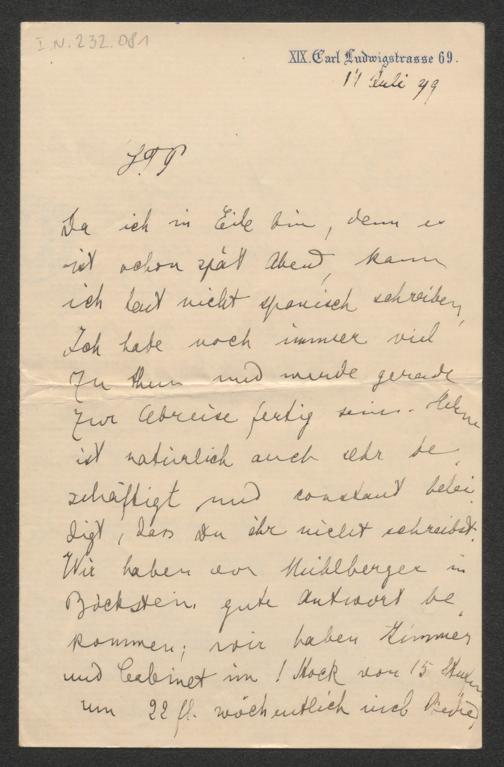 I.N. 232.081
XIX. Carl Ludwigstrasse 69.
11 Juli 99
Da ich in Eile bin, denn es
ist schon spät Abend, kann
ich heut nicht spanisch schreiben,
Ich habe noch immer viel
zu thun und werde gerade
zur Abreise fertig sein. Helene
ist natürlich auch sehr be
schäftigt und constant belei
digt, dass Du ihr nicht schreibst.
Wir haben von Mühlberger in
Böckstein gute Antwort be
kommen; wir haben Zimmer
und Cabinet im I Stock von 15.
um 22 fl. wöchentlich incl